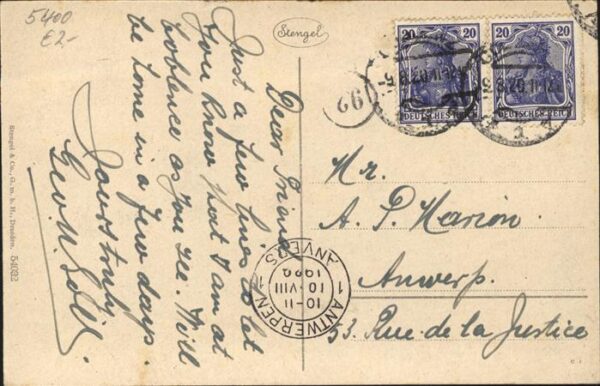 5400
€2-
Stengel
Dear Friend
Just a few lines to let
you know that I am at
Coblence as you see. Will
be home in a few days.
Yours truly
Geo.
Stengel & Co., G. m. b. H., Dresden. 54022
92
20 20
DEUTSCHES REICH
20 20
DEUTSCHES REICH
ANTWERPEN 1
10-11
10·VIII
1920
1 ANVERS
Mr.
A. P. Marion.
Antwerp.
53. Rue de la Justice